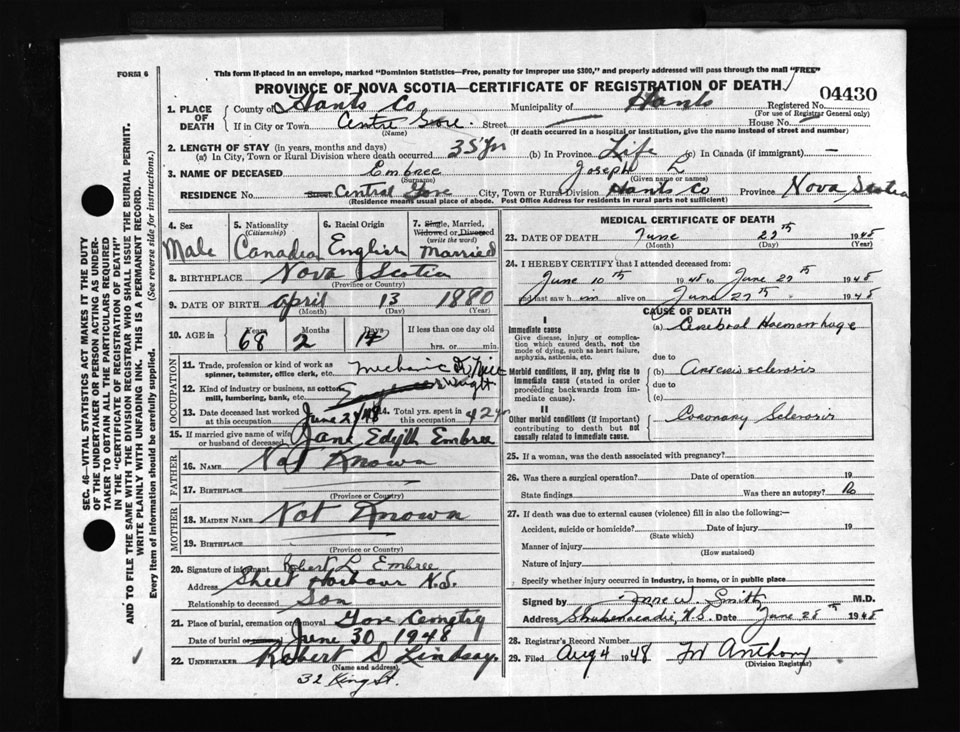 FORM 6
This form if placed in an envelope, marked "Dominion Statistics—Free, penalty for improper use $300," and properly addressed will pass through the mail "FREE"
PROVINCE OF NOVA SCOTIA—CERTIFICATE OF REGISTRATION OF DEATH
04430
1. PLACE OF DEATH County of Hants Co Municipality of Hants Registered No. (For use of Registrar General only)
If in City or Town Centre Gore. Street House No.
(Name) (If death occurred in a hospital or institution, give the name instead of street and number)
2. LENGTH OF STAY (in years, months and days)
(a) In City, Town or Rural Division where death occurred 35 yr (b) In Province Life (c) In Canada (if immigrant) —
3. NAME OF DECEASED Embree Joseph L
(Surname) (Given name or names)
RESIDENCE No. Street Central Gore City, Town or Rural Division Hants Co Province Nova Scotia
(Residence means usual place of abode. Post Office Address for residents in rural parts not sufficient)
4. Sex Male
5. Nationality (Citizenship) Canadian
6. Racial Origin English
7. Single, Married, Widowed or Divorced (write the word) Married
8. BIRTHPLACE Nova Scotia
(Province or Country)
9. DATE OF BIRTH April 13 1880
(Month) (Day) (Year)
10. AGE in Years 68 Months 2 Days 14 If less than one day old
hrs. or min.
OCCUPATION
11. Trade, profession or kind of work as spinner, teamster, office clerk, etc. mechanic
12. Kind of industry or business, as cotton mill, lumbering, bank, etc.
13. Date deceased last worked at this occupation June 24/48 14. Total yrs. spent in this occupation 42 yr
15. If married give name of wife or husband of deceased Jane Edyth Embree
FATHER
16. NAME Not Known
17. BIRTHPLACE
(Province or Country)
MOTHER
18. MAIDEN NAME Not Known
19. BIRTHPLACE
(Province or Country)
20. Signature of informant Robert L Embree
Address Sheet Harbour N.S.
Relationship to deceased Son
21. Place of burial, cremation or removal Gore Cemetry
Date of burial June 30 1948
22. UNDERTAKER Robert D Lindsay.
(Name and address)
32 King St.
MEDICAL CERTIFICATE OF DEATH
23. DATE OF DEATH June 27th 1948
(Month) (Day) (Year)
24. I HEREBY CERTIFY that I attended deceased from:
June 10th 1948 to June 27th 1948
and last saw him alive on June 27th 1948
CAUSE OF DEATH
I
Immediate cause (a) Cerebral Haemorrhage
Give disease, injury or complication which caused death, not the mode of dying, such as heart failure, asphyxia, asthenia, etc.
due to
Morbid conditions, if any, giving rise to immediate cause (stated in order proceeding backwards from immediate cause). (b) Arteriosclerosis
due to
(c)
II
Other morbid conditions (if important) contributing to death but not causally related to immediate cause. Coronary Sclerosis
25. If a woman, was the death associated with pregnancy?
26. Was there a surgical operation? Date of operation 19
State findings Was there an autopsy? No
27. If death was due to external causes (violence) fill in also the following:—
Accident, suicide or homicide? Date of injury 19
(State which)
Manner of injury
(How sustained)
Nature of injury
Specify whether injury occurred in industry, in home, or in public place
Signed by W. Smith M.D.
Address Shubenacadie N.S. Date June 28th 1948
28. Registrar's Record Number
29. Filed Aug 4 1948 Anthony
(Division Registrar)
SEC. 46—VITAL STATISTICS ACT MAKES IT THE DUTY
OF THE UNDERTAKER OR PERSON ACTING AS UNDER-
TAKER TO OBTAIN ALL THE PARTICULARS REQUIRED
IN THE "CERTIFICATE OF REGISTRATION OF DEATH"
AND TO FILE THE SAME WITH THE DIVISION REGISTRAR WHO SHALL ISSUE THE BURIAL PERMIT.
WRITE PLAINLY WITH UNFADING INK. THIS IS A PERMANENT RECORD.
Every item of information should be carefully supplied. (See reverse side for instructions.)